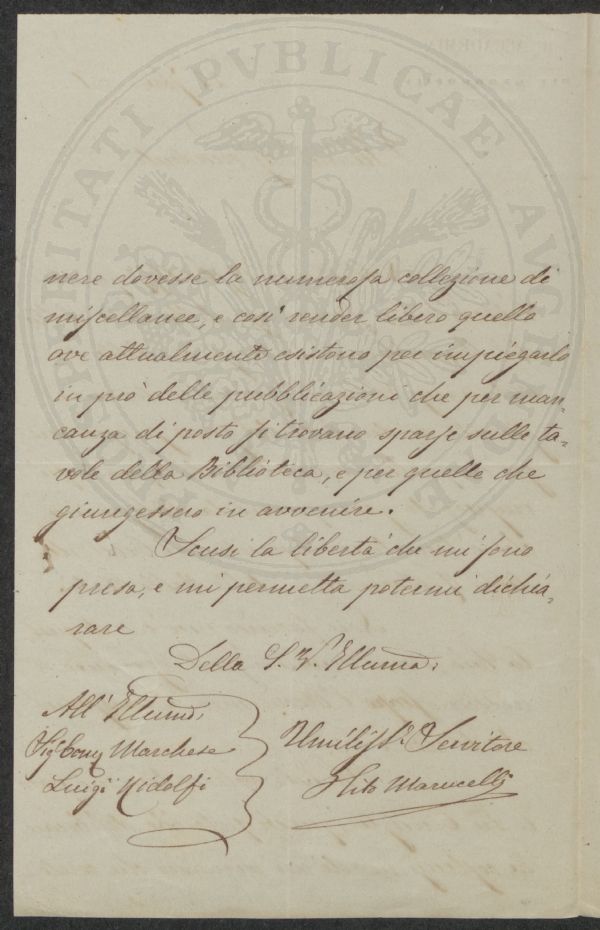 PROSPERITATI PVBLICAE AVGENDAE
nere dovesse la numerosa collezione di
miscellanee, e così render libero quello
ove attualmente esistono per impiegarlo
in prò delle pubblicazioni che per man-
canza di posto si trovano sparse sulle ta-
vole della Biblioteca, e per quelle che
giungessero in avvenire.
Scusi la libertà che mi sono
presa, e mi permetta potermi dichia-
rare
Della S. V. Illuma.
All' Illumo.
Sig. Comm. Marchese
Luigi Ridolfi
Umiliss. Servitore
Marucelli